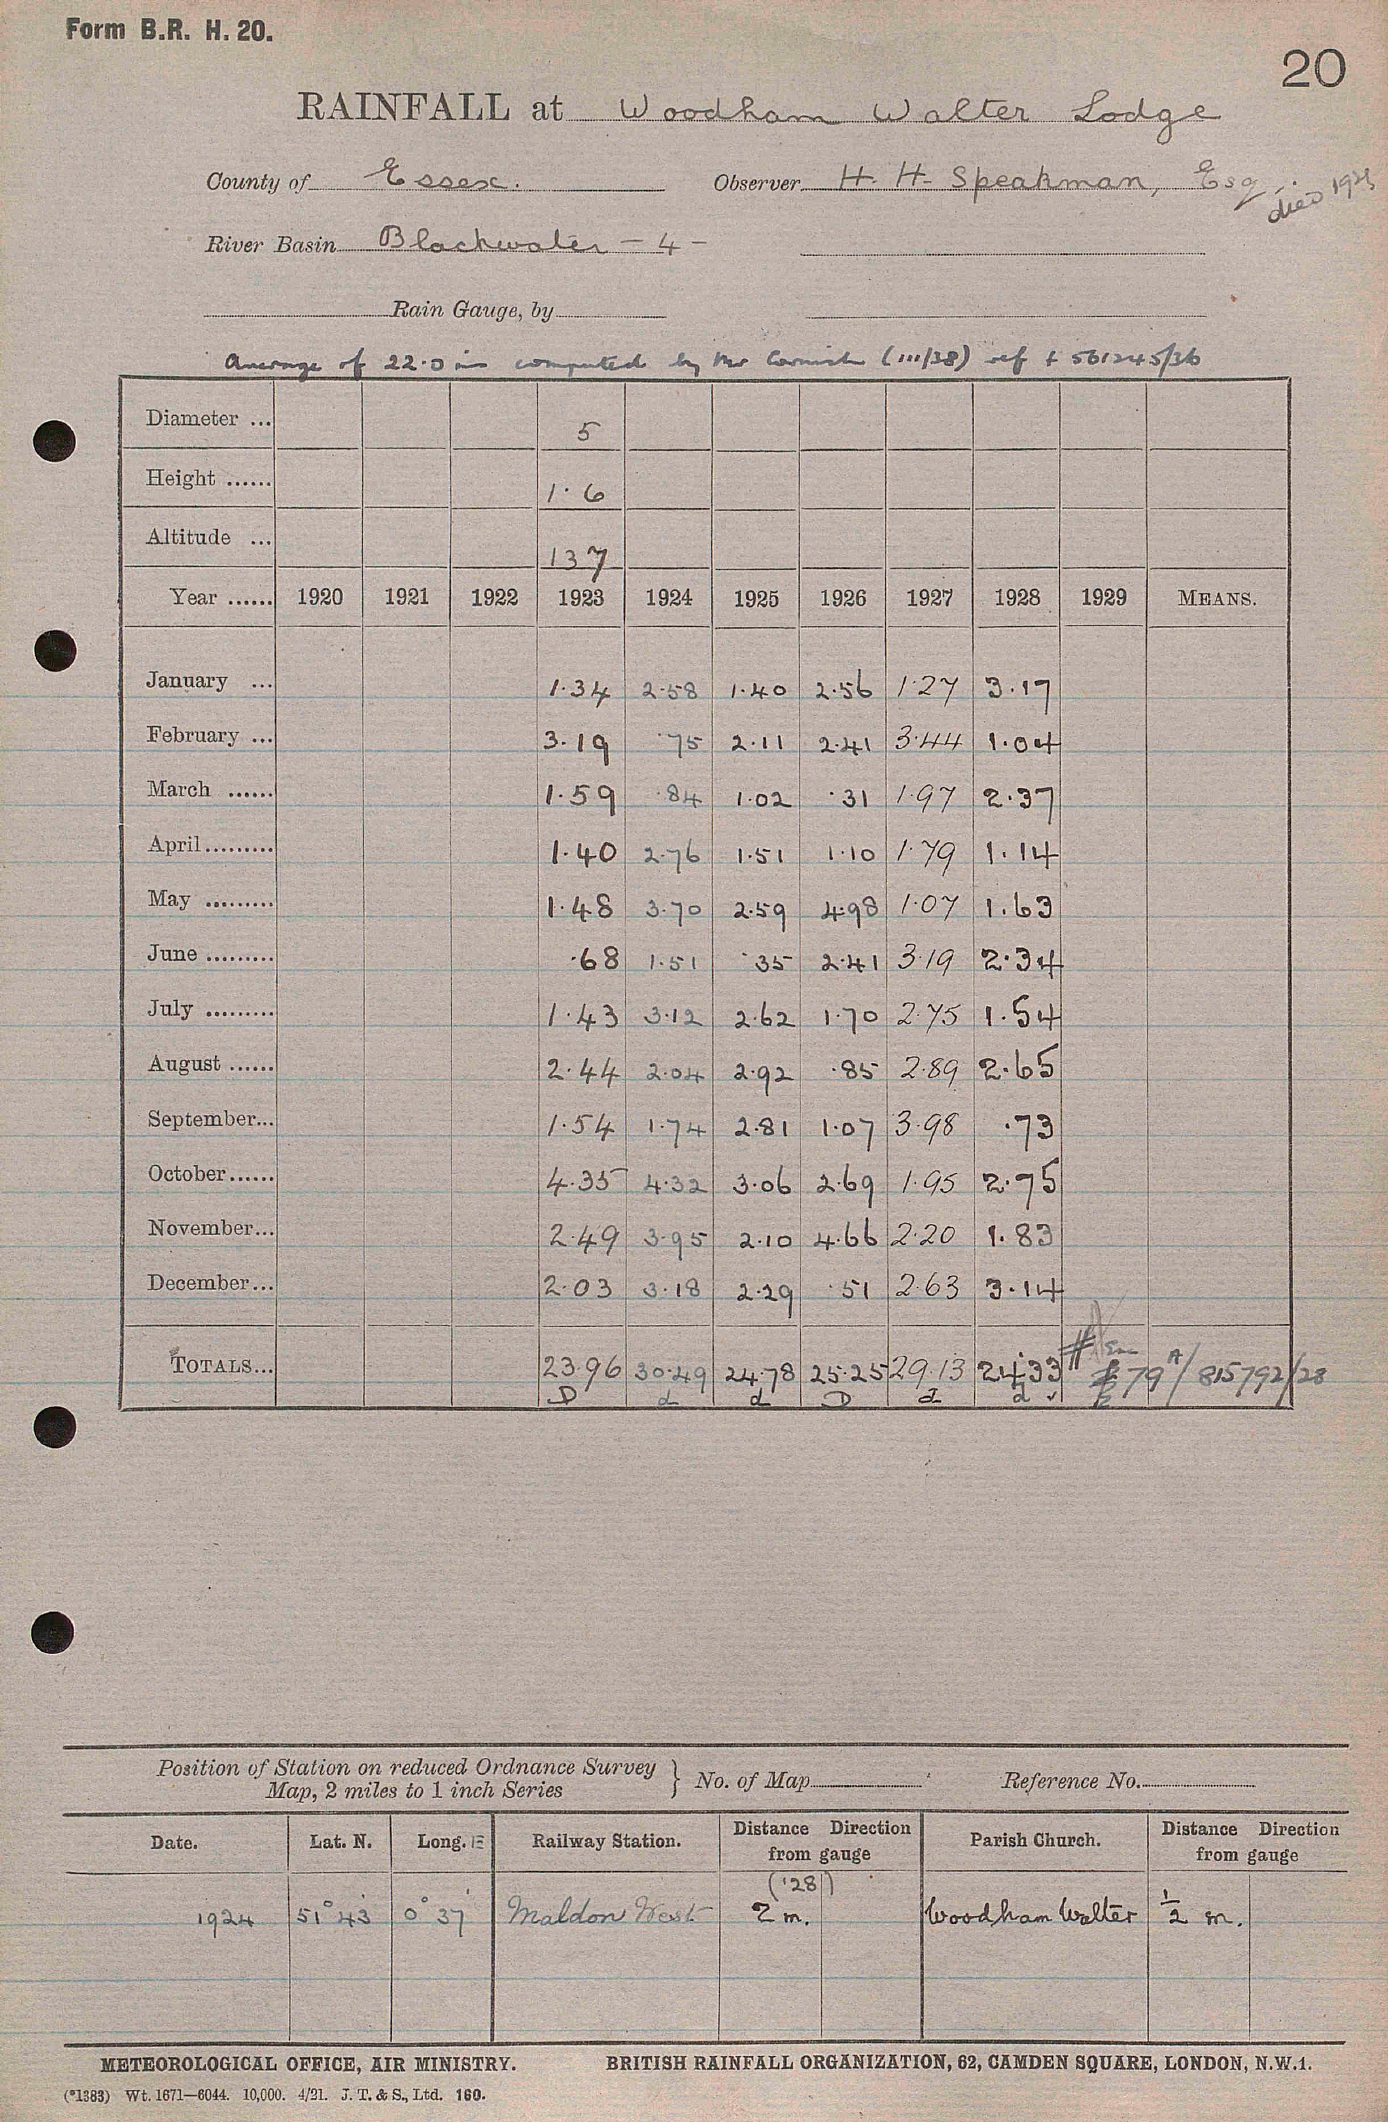 Form B.R. H. 20.
20
RAINFALL at Woodham Walter Lodge
County of Essex. Observer H. H. Speakman, Esq.
died
River Basin Blackwater - 4 -
Rain Gauge, by
Average of 22.0 in computed by Mr Cornish (III/38) ref 561245/36
Diameter ... 5
Height ...... 1.6
Altitude ... 137
Year ...... 1920 1921 1922 1923 1924 1925 1926 1927 1928 1929 MEANS.
January ... 1.34 2.58 1.40 2.56 1.27 3.17
February ... 3.19 .75 2.11 2.41 3.44 1.04
March ...... 1.59 .84 1.02 .31 1.97 2.37
April......... 1.40 2.76 1.51 1.10 1.79 1.14
May ......... 1.48 3.70 2.59 4.98 1.07 1.63
June ......... .68 1.51 .35 2.41 3.19 2.34
July ......... 1.43 3.12 2.62 1.70 2.75 1.54
August ...... 2.44 2.04 2.92 .85 2.89 2.65
September... 1.54 1.74 2.81 1.07 3.98 .73
October...... 4.35 4.32 3.06 2.69 1.95 2.75
November... 2.49 3.95 2.10 4.66 2.20 1.83
December... 2.03 3.18 2.29 .51 2.63 3.14
TOTALS... 23.96 30.49 24.78 25.25 29.13 24.33 # 79A/815792/28
D d d D d d ✓
Position of Station on reduced Ordnance Survey } No. of Map Reference No.
Map, 2 miles to 1 inch Series
Date. Lat. N. Long. E Railway Station. Distance Direction from gauge Parish Church. Distance Direction from gauge
('28)
1924 51° 43' 0° 37' Maldon West 2 m. Woodham Walter 1/2 m.
METEOROLOGICAL OFFICE, AIR MINISTRY. BRITISH RAINFALL ORGANIZATION, 62, CAMDEN SQUARE, LONDON, N.W.1.
(*1383) Wt. 1671—6044. 10,000. 4/21. J. T. & S., Ltd. 160.